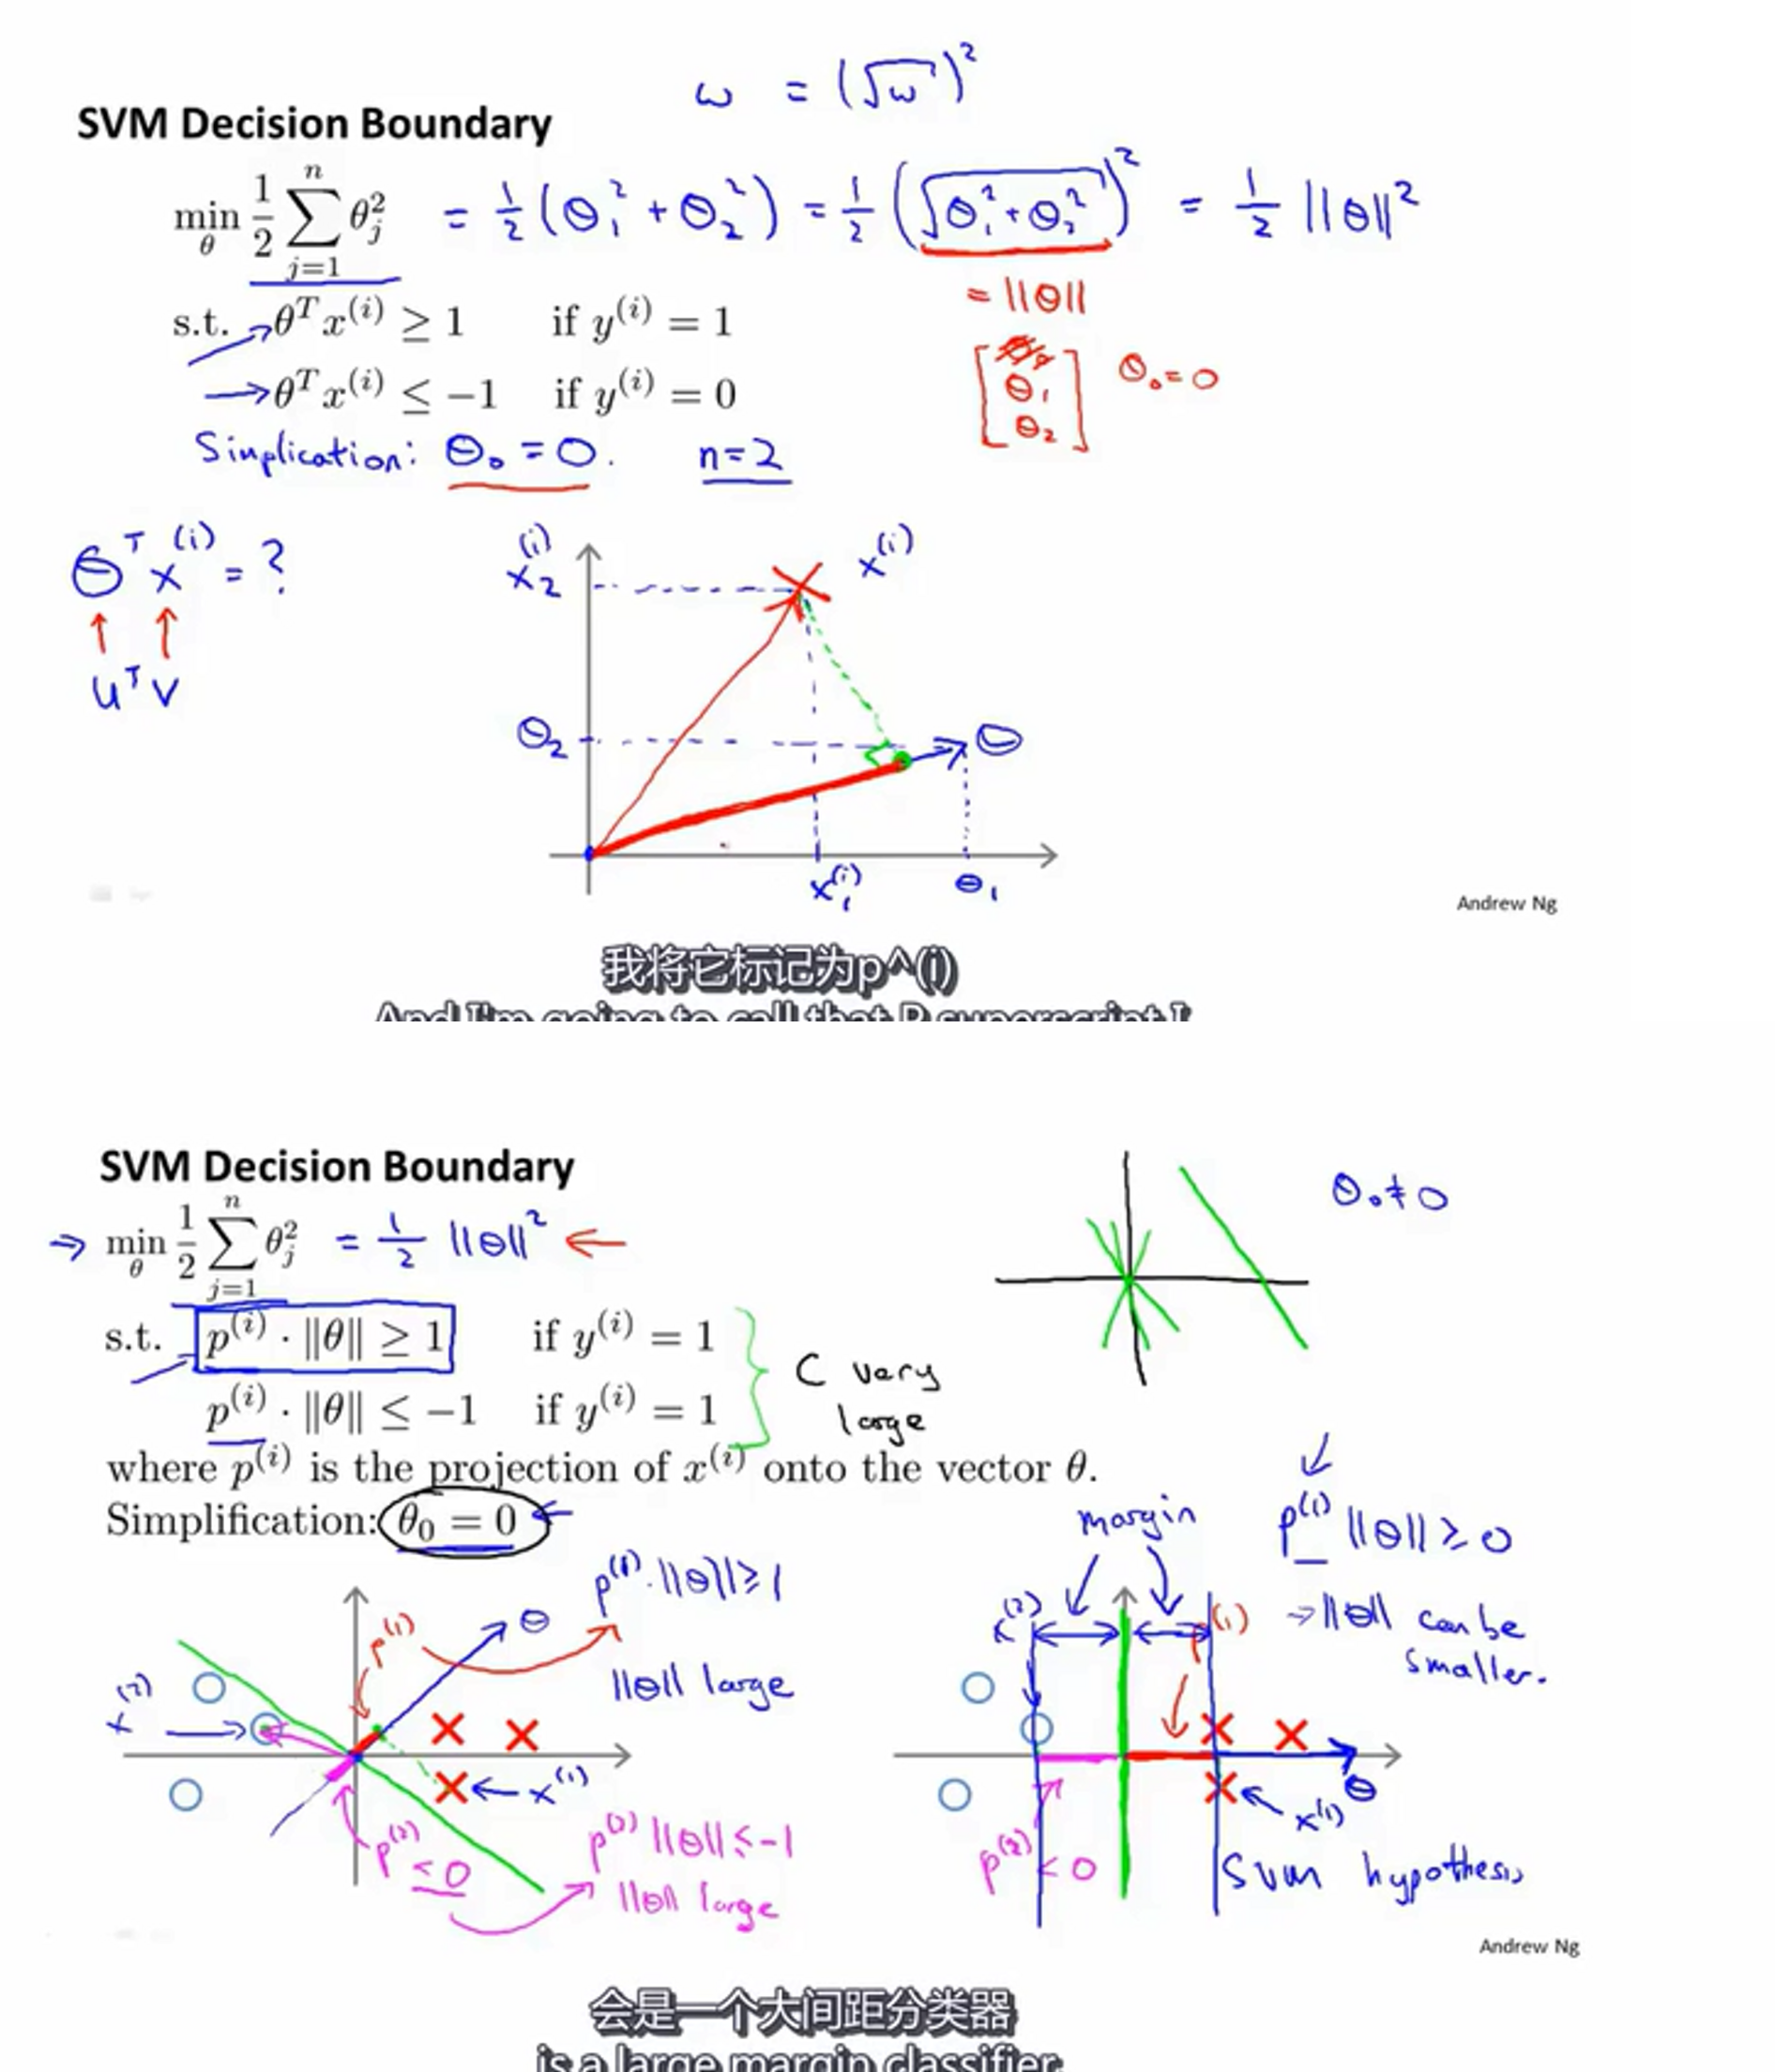 ω = (√ω)²
SVM Decision Boundary
min_θ 1/2 ∑_{j=1}^{n} θ_j² = 1/2 (Θ₁² + Θ₂²) = 1/2 (√(Θ₁² + Θ₂²))² = 1/2 ||Θ||²
= ||Θ||
s.t. → θᵀx⁽ⁱ⁾ ≥ 1 if y⁽ⁱ⁾ = 1
→ θᵀx⁽ⁱ⁾ ≤ −1 if y⁽ⁱ⁾ = 0
[Θ₁ Θ₂] Θ₀ = 0
Simplication: Θ₀ = 0. n = 2
Θᵀx⁽ⁱ⁾ = ?
↑ ↑
uᵀv
x₂⁽ⁱ⁾
x⁽ⁱ⁾
Θ₂
Θ
x₁⁽ⁱ⁾
Θ₁
Andrew Ng
我将它标记为p^(i)
And I'm going to call that P superscript I
SVM Decision Boundary
⇒ min_θ 1/2 ∑_{j=1}^{n} θ_j² = 1/2 ||Θ||² ←
Θ₀ ≠ 0
s.t. p⁽ⁱ⁾ · ‖θ‖ ≥ 1 if y⁽ⁱ⁾ = 1
p⁽ⁱ⁾ · ‖θ‖ ≤ −1 if y⁽ⁱ⁾ = 1
C very
large
where p⁽ⁱ⁾ is the projection of x⁽ⁱ⁾ onto the vector θ.
Simplification: θ₀ = 0 ←
p⁽¹⁾ · ||Θ|| ≥ 1
Θ
p⁽¹⁾
||Θ|| large
x⁽²⁾
x⁽¹⁾
p⁽²⁾ < 0
p⁽²⁾ ||Θ|| ≤ −1
||Θ|| large
margin
p⁽¹⁾ ||Θ|| ≥ 0
→ ||Θ|| can be
smaller.
x⁽²⁾
p⁽¹⁾
Θ
x⁽¹⁾
p⁽²⁾ < 0
SVM hypothesis
Andrew Ng
会是一个大间距分类器
is a large margin classifier